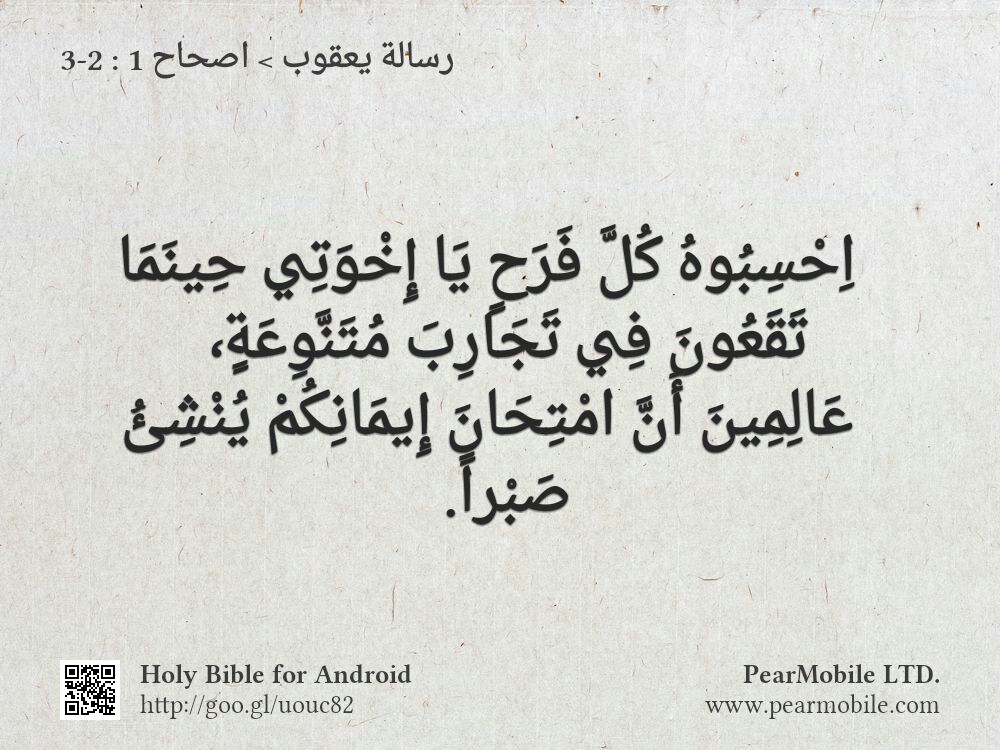 رسالة يعقوب > اصحاح 1 : 2-3
اِحْسِبُوهُ كُلَّ فَرَحٍ يَا إِخْوَتِي حِينَمَا
تَقَعُونَ فِي تَجَارِبَ مُتَنَّوِعَةٍ،
عَالِمِينَ أَنَّ امْتِحَانَ إِيمَانِكُمْ يُنْشِئُ
صَبْراً.
Holy Bible for Android
http://goo.gl/uouc82
PearMobile LTD.
www.pearmobile.com